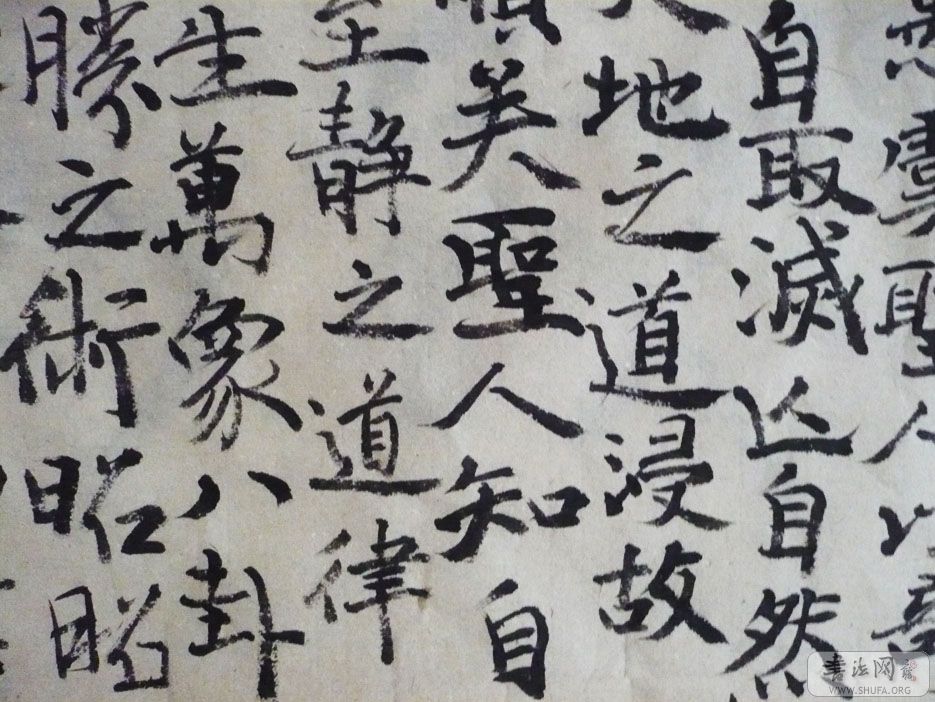 愚虞聖人以奇
自取滅亡自然
天地之道浸故
順矣聖人知自
至靜之道律
生萬象八卦
勝之術昭昭
書法网
WWW.SHUFA.ORG